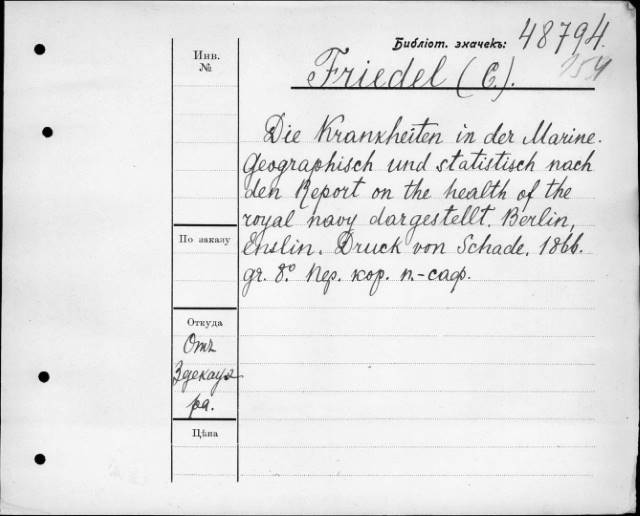 Библіот. значекъ: 48794.
Инв.
№
254
Friedel (C.).
Die Krankheiten in der Marine.
Geographisch und statistisch nach
den Report on the health of the
royal navy dargestellt. Berlin,
Enslin. Druck von Schade. 1866.
gr. 8.° Пер. кор. п.-саф.
По заказу
Откуда
Отъ
Здекауэ
ра.
Цѣна